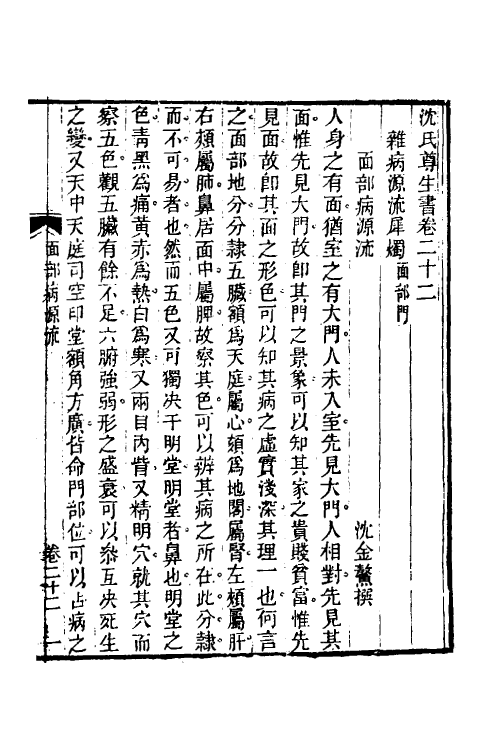 沈氏尊生書卷二十二
雜病源流犀燭面部門
面部病源流
沈金鰲撰
人身之有面猶室之有大門人未入室先見大門人相對先見其
面惟先見大門故卽其門之景象可以知其家之貴賤貧富惟先
見面故卽其面之形色可以知其病之虛實淺深其理一也何言
之面部地分分隷五臟額爲天庭屬心頦爲地閣屬腎左頰屬肝
右頰屬肺鼻居面中屬脾故察其色可以辨其病之所在此分隷
而不可易者也然而五色又可獨决于明堂明堂者鼻也明堂之
色靑黑爲痛黃赤爲熱白爲寒又兩目內眥又精明穴就其穴而
察五色觀五臟有餘不足六腑強弱形之盛衰可以叅互决死生
之變又天中天庭司空印堂額角方廣皆命門部位可以占病之
面部病源流
卷二十二
一